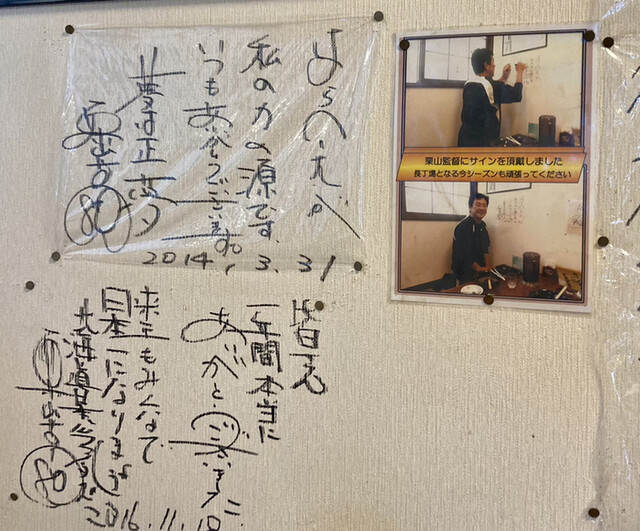 私の力の源です。
いつもありがとうございます。
夢は正夢
80
2014.3.31
栗山監督にサインを頂戴しました
長丁場となる今シーズンも頑張ってください
一年間本当に
ありがとうございました
来年もみんなで
日本一になりましょう
北海道
80
2016.11.10